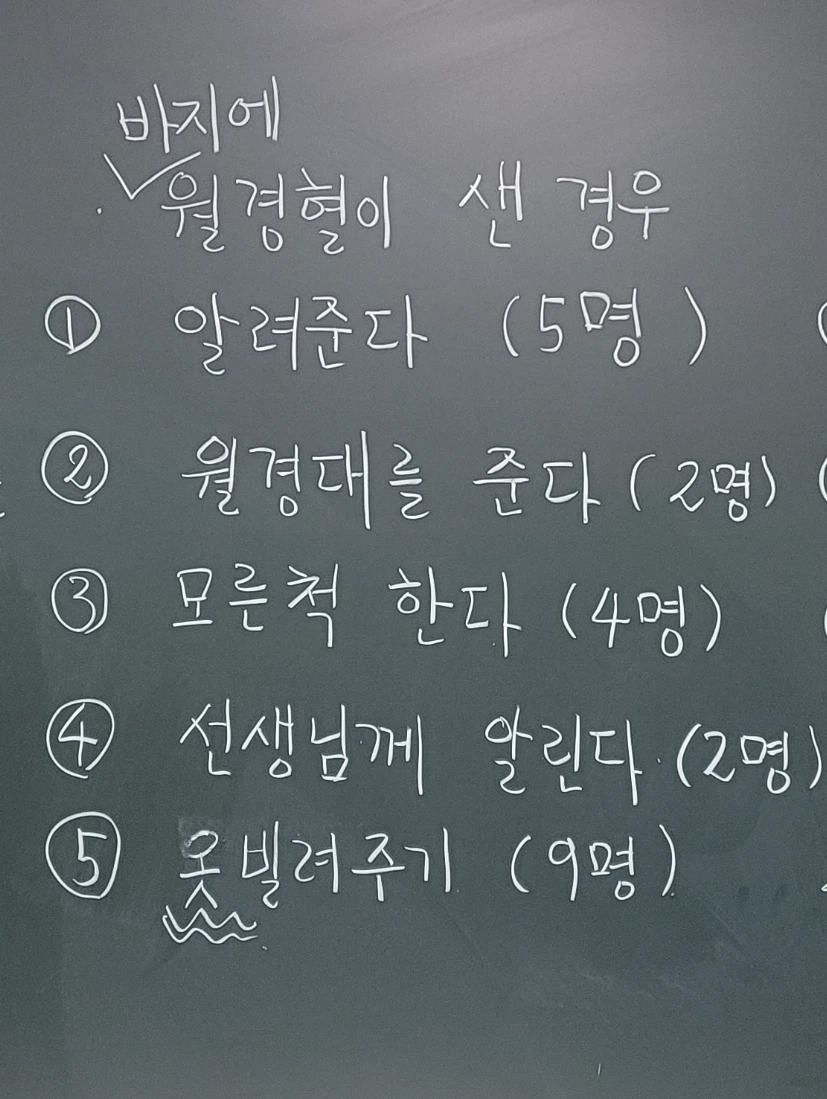 바지에
월경혈이 샌 경우
① 알려준다 (5명)
② 월경대를 준다 (2명)
③ 모른척 한다 (4명)
④ 선생님께 알린다. (2명)
⑤ 옷빌려주기 (9명)